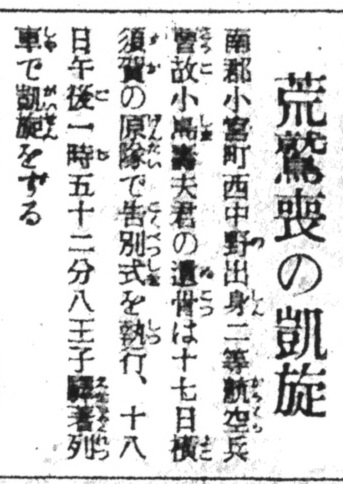 荒鷲喪の凱旋
南郡小宮町西中野出身二等航空兵
曹故小島壽夫君の遺骨は十七日横
須賀の原隊で告別式を執行、十八
日午後一時五十二分八王子驛著列
車で凱旋をする